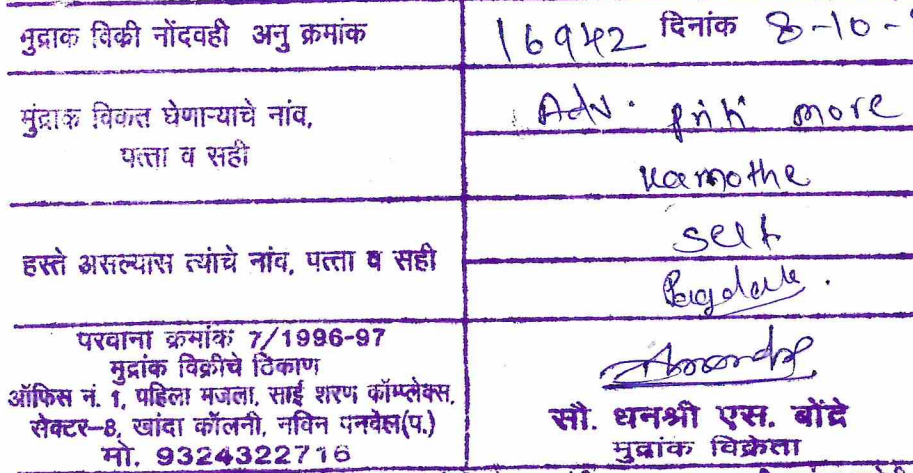 मुद्रांक विक्री नोंदवही अनु क्रमांक 16942 दिनांक 8-10-
मुंद्राक विकत घेणाऱ्याचे नांव, Adv. priti more
पत्ता व सही kamothe
हस्ते असल्यास त्यांचे नांव, पत्ता व सही self
परवाना क्रमांक 7/1996-97
मुद्रांक विक्रीचे ठिकाण
ऑफिस नं. 1, पहिला मजला, साई शरण कॉम्प्लेक्स,
सेक्टर-8, खांदा कॉलनी, नविन पनवेल(प.)
मो. 9324322716
सौ. धनश्री एस. बोंद्रे
मुद्रांक विक्रेता